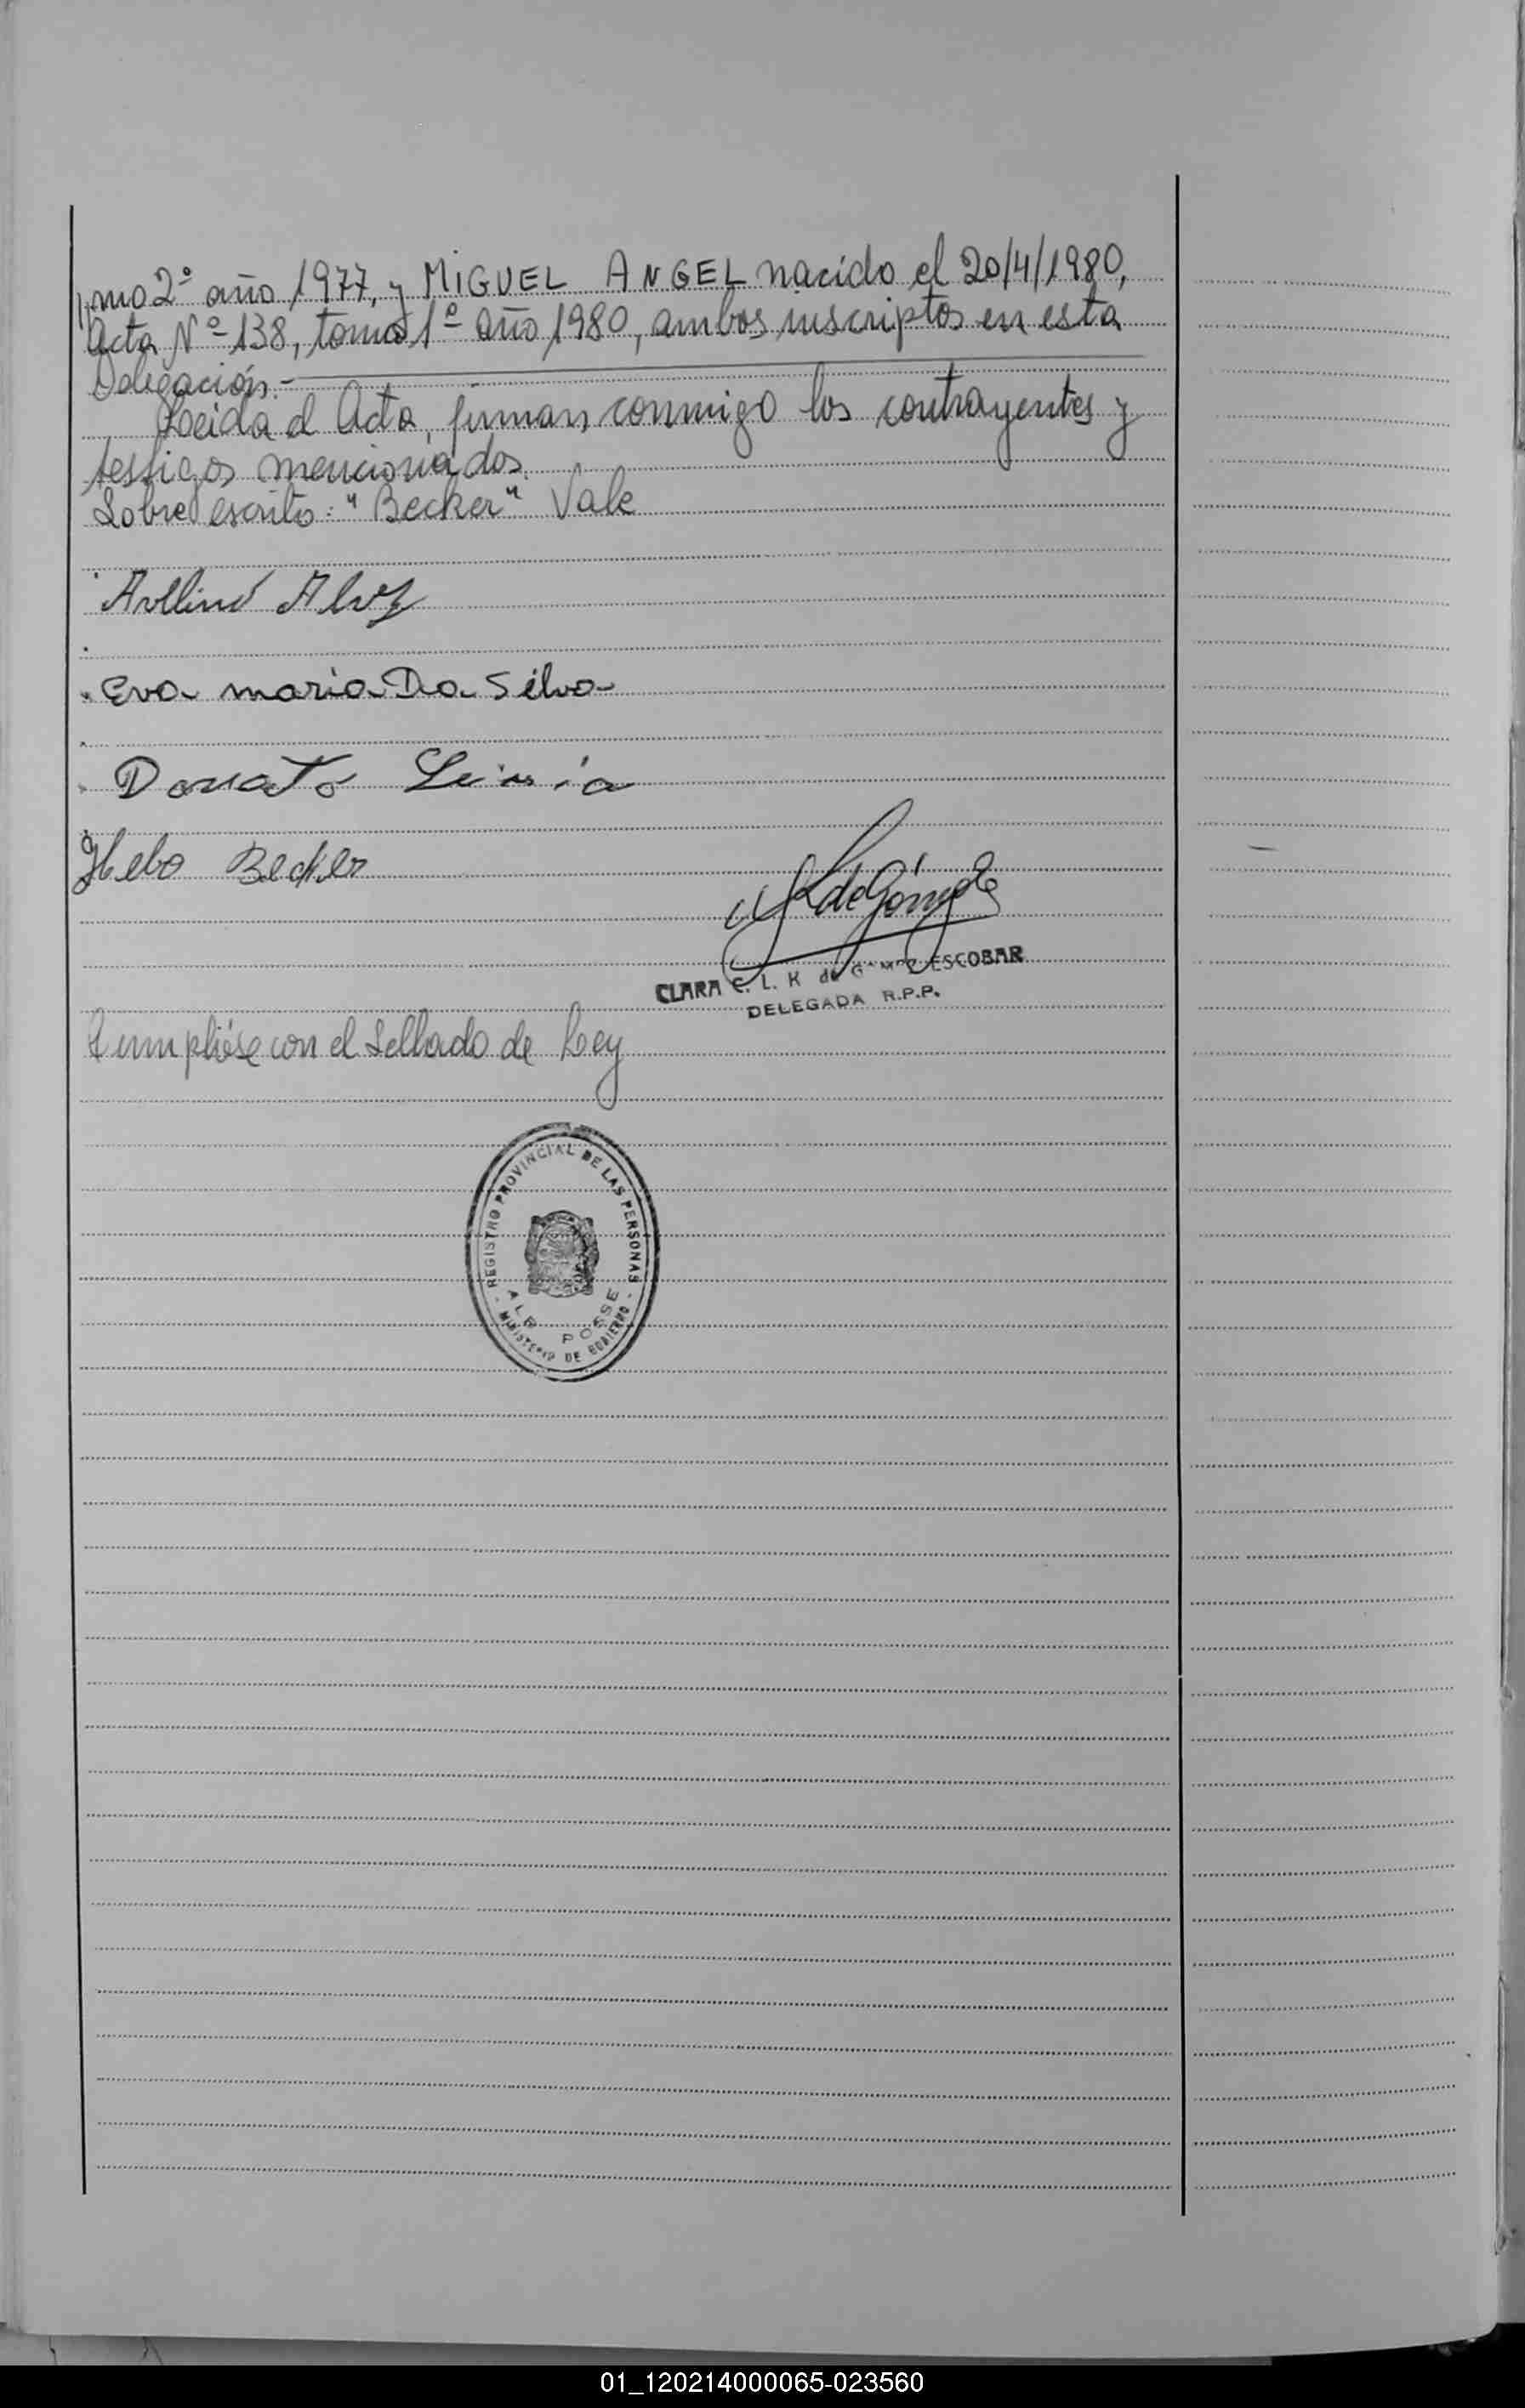 //mo 2º año 1977, y MIGUEL ANGEL nacido el 20/4/1980,
Acta Nº 138, tomo 1º año 1980, ambos inscriptos en esta
Delegación.-
Leida el Acta, firman conmigo los contrayentes y
testigos mencionados.
Sobre escrito: "Becker" Vale
Avelino Alvez
Eva maria Da Silva
Donato
Becker
de Gómez
CLARA C. L. K de GOMEZ ESCOBAR
DELEGADA R.P.P.
Cumplióse con el Sellado de Ley
REGISTRO PROVINCIAL DE LAS PERSONAS
ALB. POSSE
MINISTERIO DE GOBIERNO
01_120214000065-023560